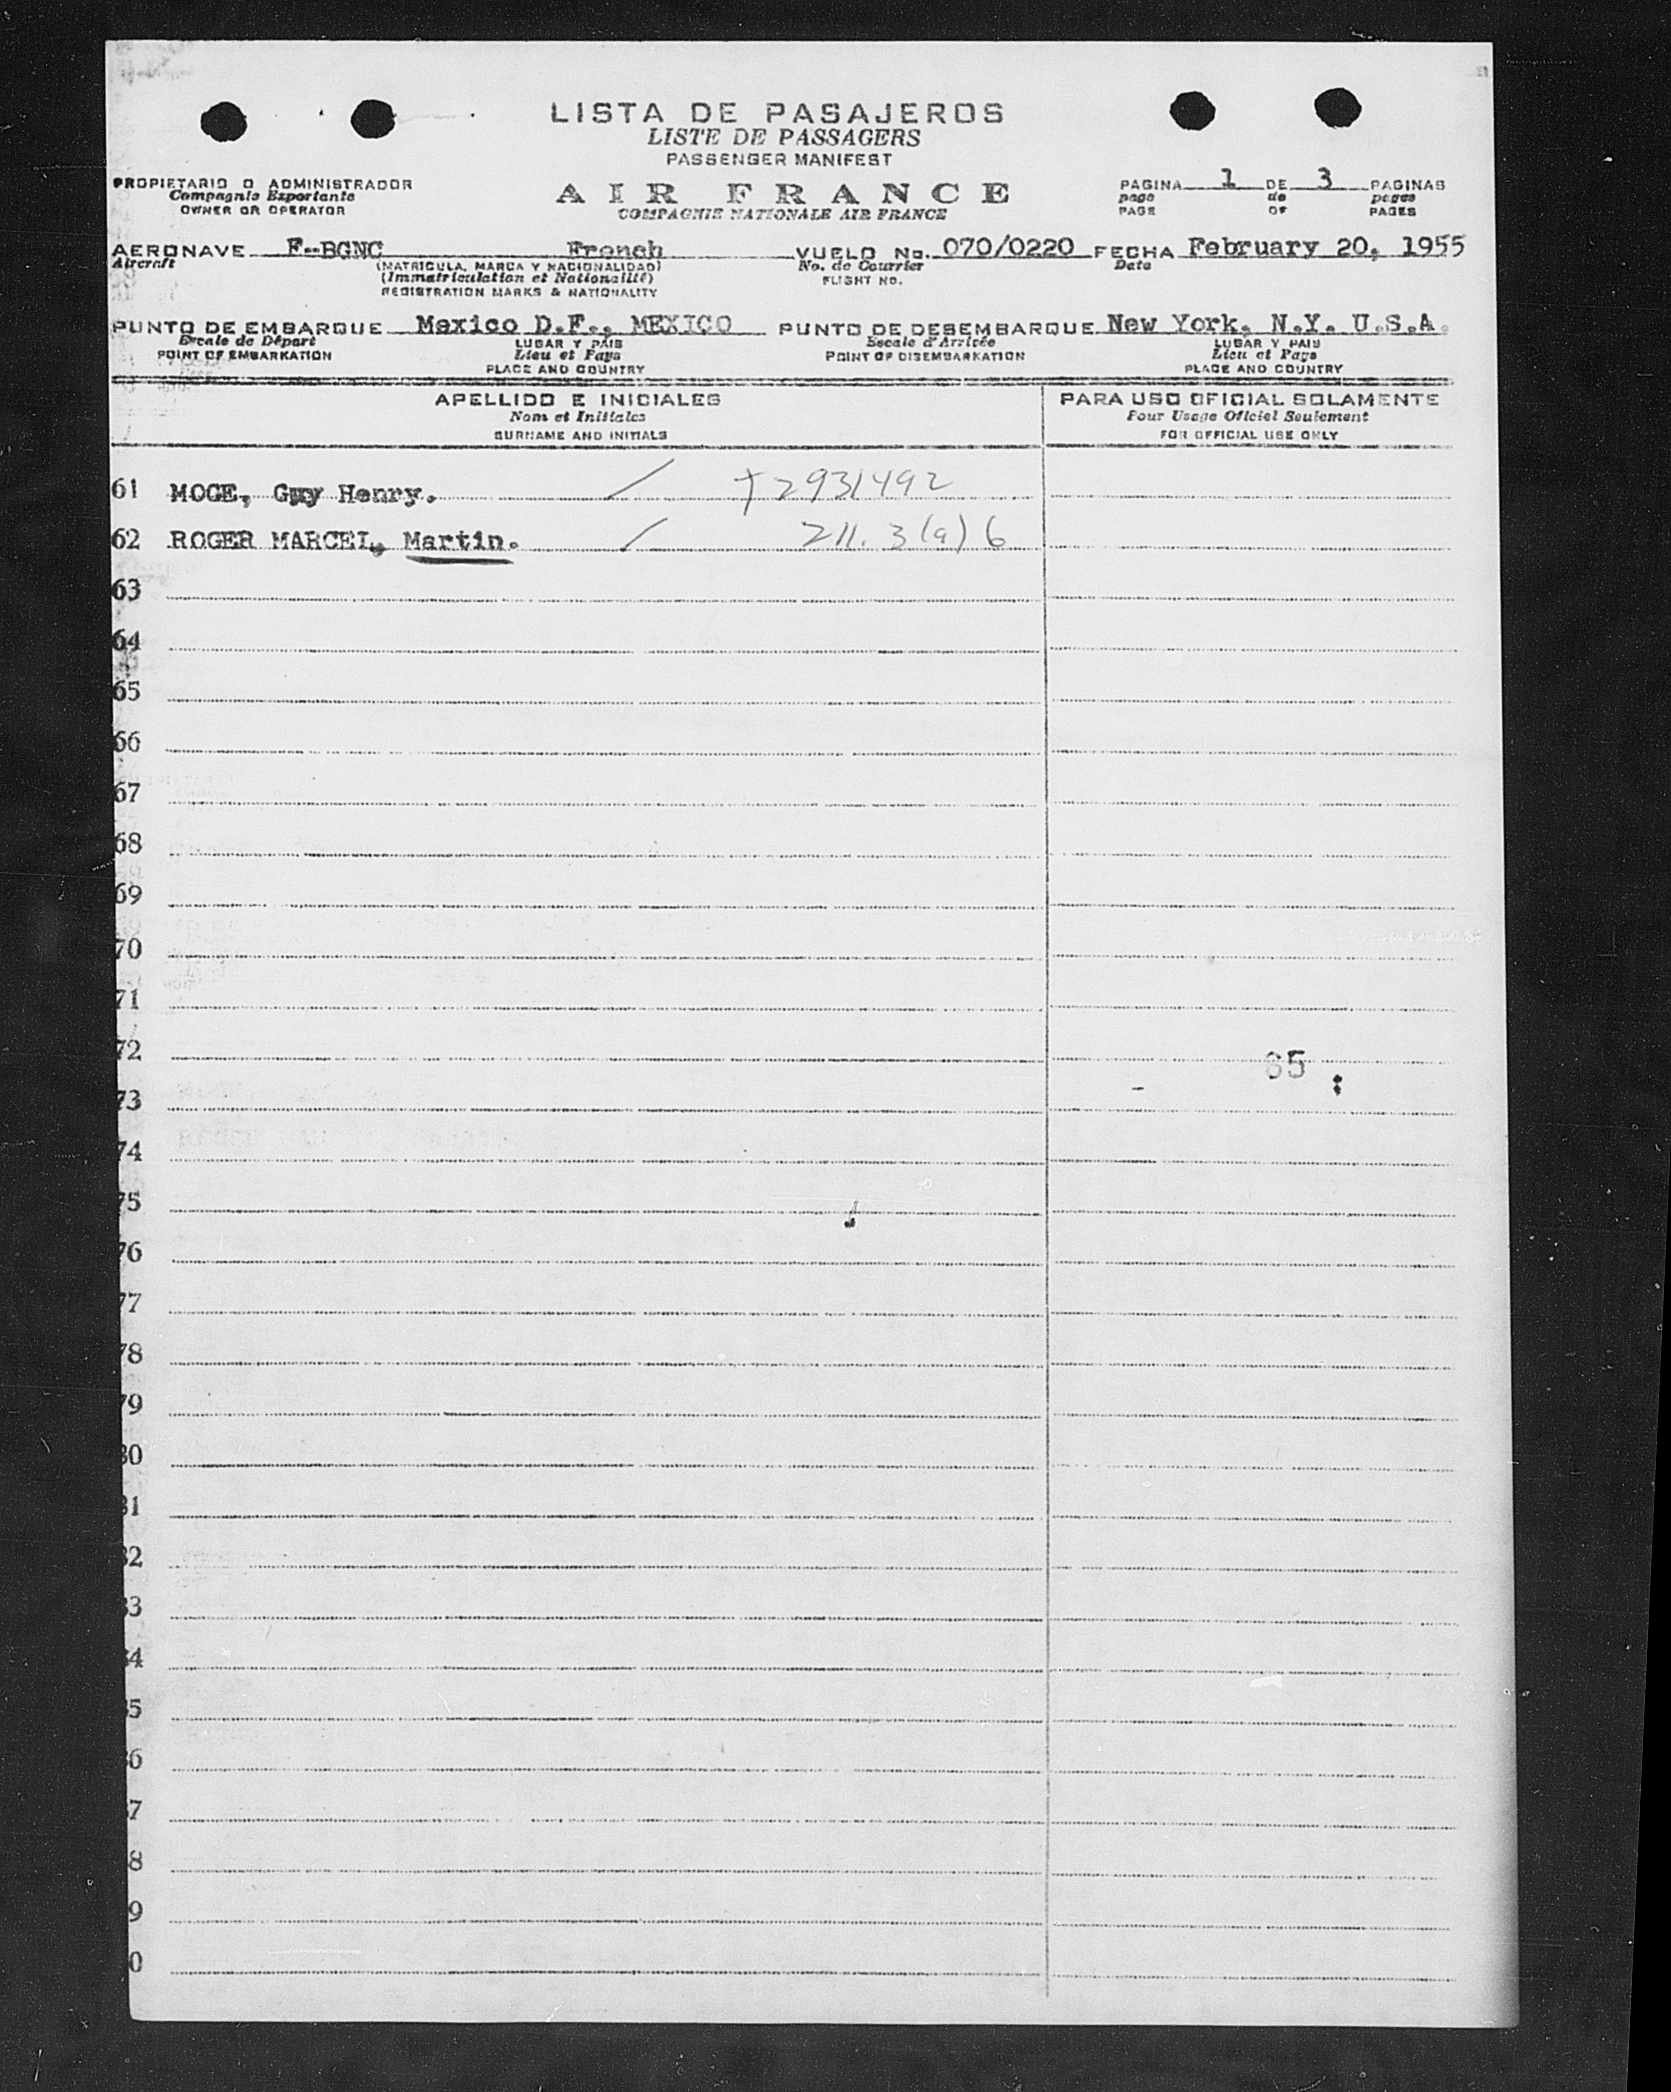 LISTA DE PASAJEROS
LISTE DE PASSAGERS
PASSENGER MANIFEST
PROPIETARIO O ADMINISTRADOR
Compagnie Exportante
OWNER OR OPERATOR
AIR FRANCE
COMPAGNIE NATIONALE AIR FRANCE
PAGINA 1 DE 3 PAGINAS
page de pages
PAGE OF PAGES
AERONAVE F-BGNC French VUELO No. 070/0220 FECHA February 20, 1955
Aircraft (MATRICULA, MARCA Y NACIONALIDAD) No. de Courrier Date
(Immatriculation et Nationalité) FLIGHT NO.
REGISTRATION MARKS & NATIONALITY
PUNTO DE EMBARQUE Mexico D.F., MEXICO PUNTO DE DESEMBARQUE New York, N.Y. U.S.A.
Escale de Départ LUGAR Y PAIS Escale d'Arrivée LUGAR Y PAIS
POINT OF EMBARKATION Lieu et Pays POINT OF DISEMBARKATION Lieu et Pays
PLACE AND COUNTRY PLACE AND COUNTRY
APELLIDO E INICIALES PARA USO OFICIAL SOLAMENTE
Nom et Initiales Pour Usage Oficiel Seulement
SURNAME AND INITIALS FOR OFFICIAL USE ONLY
61 MOGE, Guy Henry. / T2931492
62 ROGER MARCEL, Martin. / 211. 3(a) 6
63
64
65
66
67
68
69
70
71
72
65
73
74
75
76
77
78
79
80
81
82
83
84
85
86
87
8
9
0